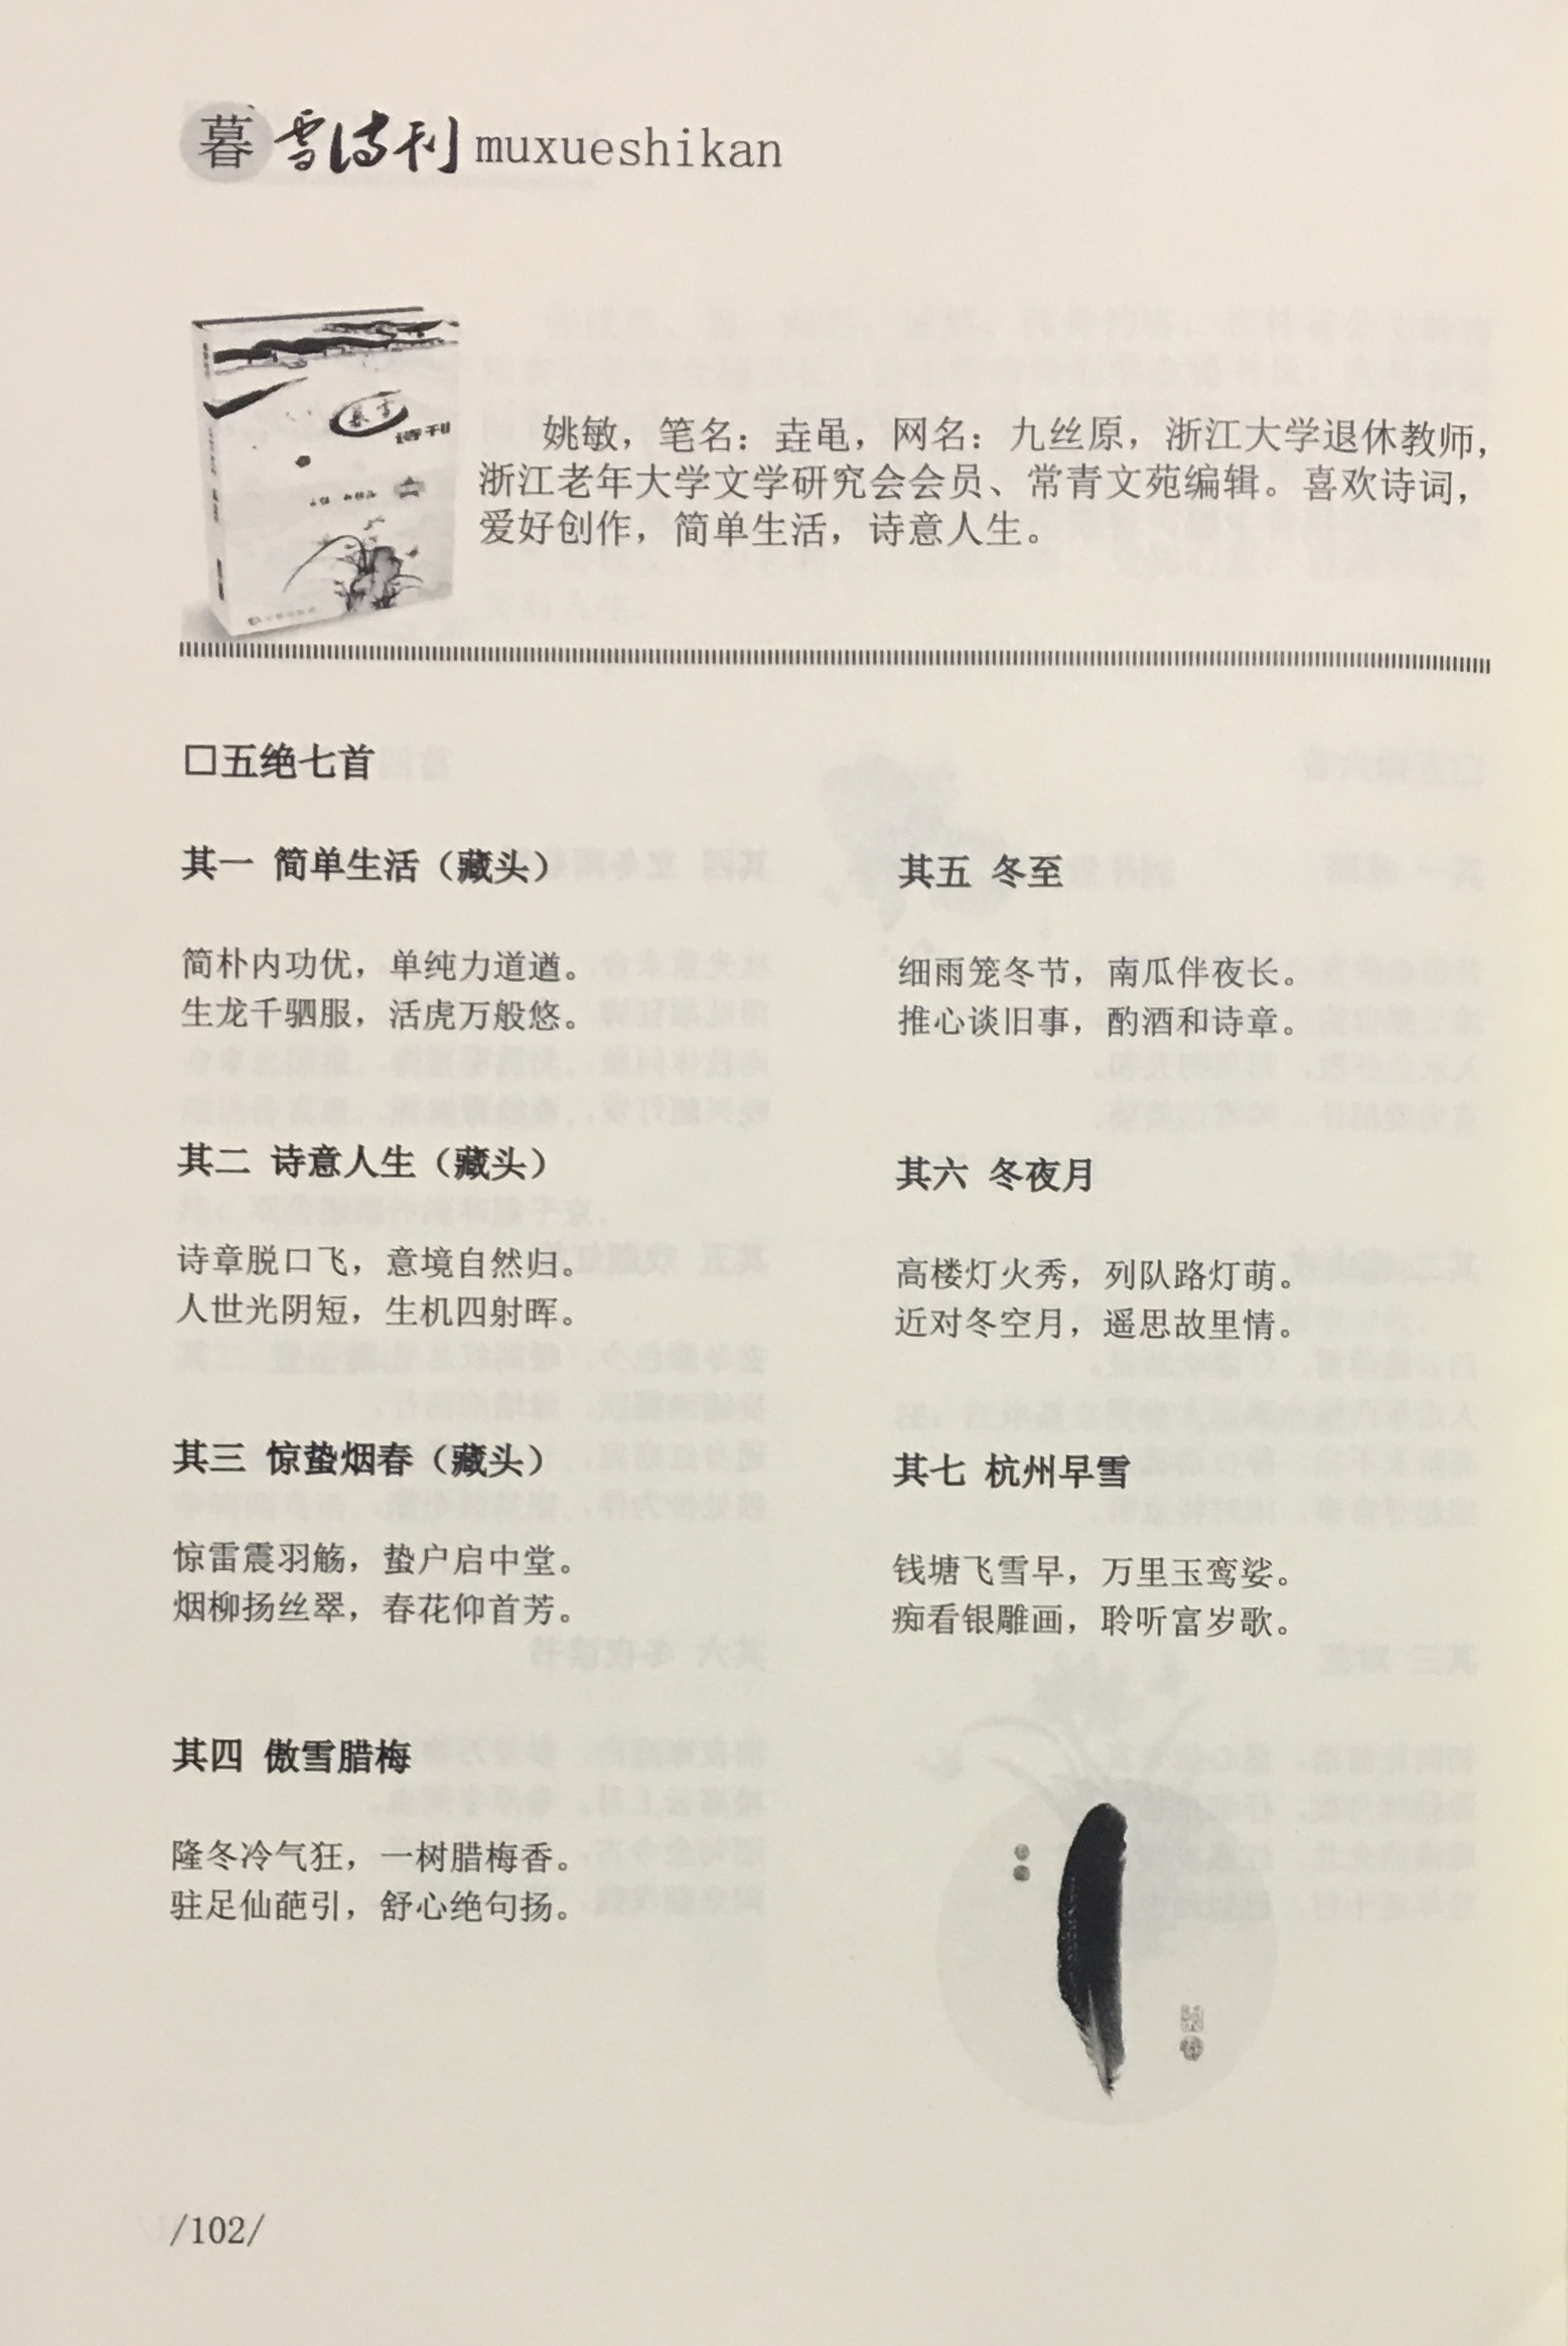 暮雪诗刊 muxueshikan
姚敏，笔名：垚黾，网名：九丝原，浙江大学退休教师，
浙江老年大学文学研究会会员、常青文苑编辑。喜欢诗词，
爱好创作，简单生活，诗意人生。
□五绝七首
其一 简单生活（藏头）
简朴内功优，单纯力道遒。
生龙千驷服，活虎万般悠。
其二 诗意人生（藏头）
诗章脱口飞，意境自然归。
人世光阴短，生机四射晖。
其三 惊蛰烟春（藏头）
惊雷震羽觞，蛰户启中堂。
烟柳扬丝翠，春花仰首芳。
其四 傲雪腊梅
隆冬冷气狂，一树腊梅香。
驻足仙葩引，舒心绝句扬。
其五 冬至
细雨笼冬节，南瓜伴夜长。
推心谈旧事，酌酒和诗章。
其六 冬夜月
高楼灯火秀，列队路灯萌。
近对冬空月，遥思故里情。
其七 杭州早雪
钱塘飞雪早，万里玉鸾娑。
痴看银雕画，聆听富岁歌。
/102/